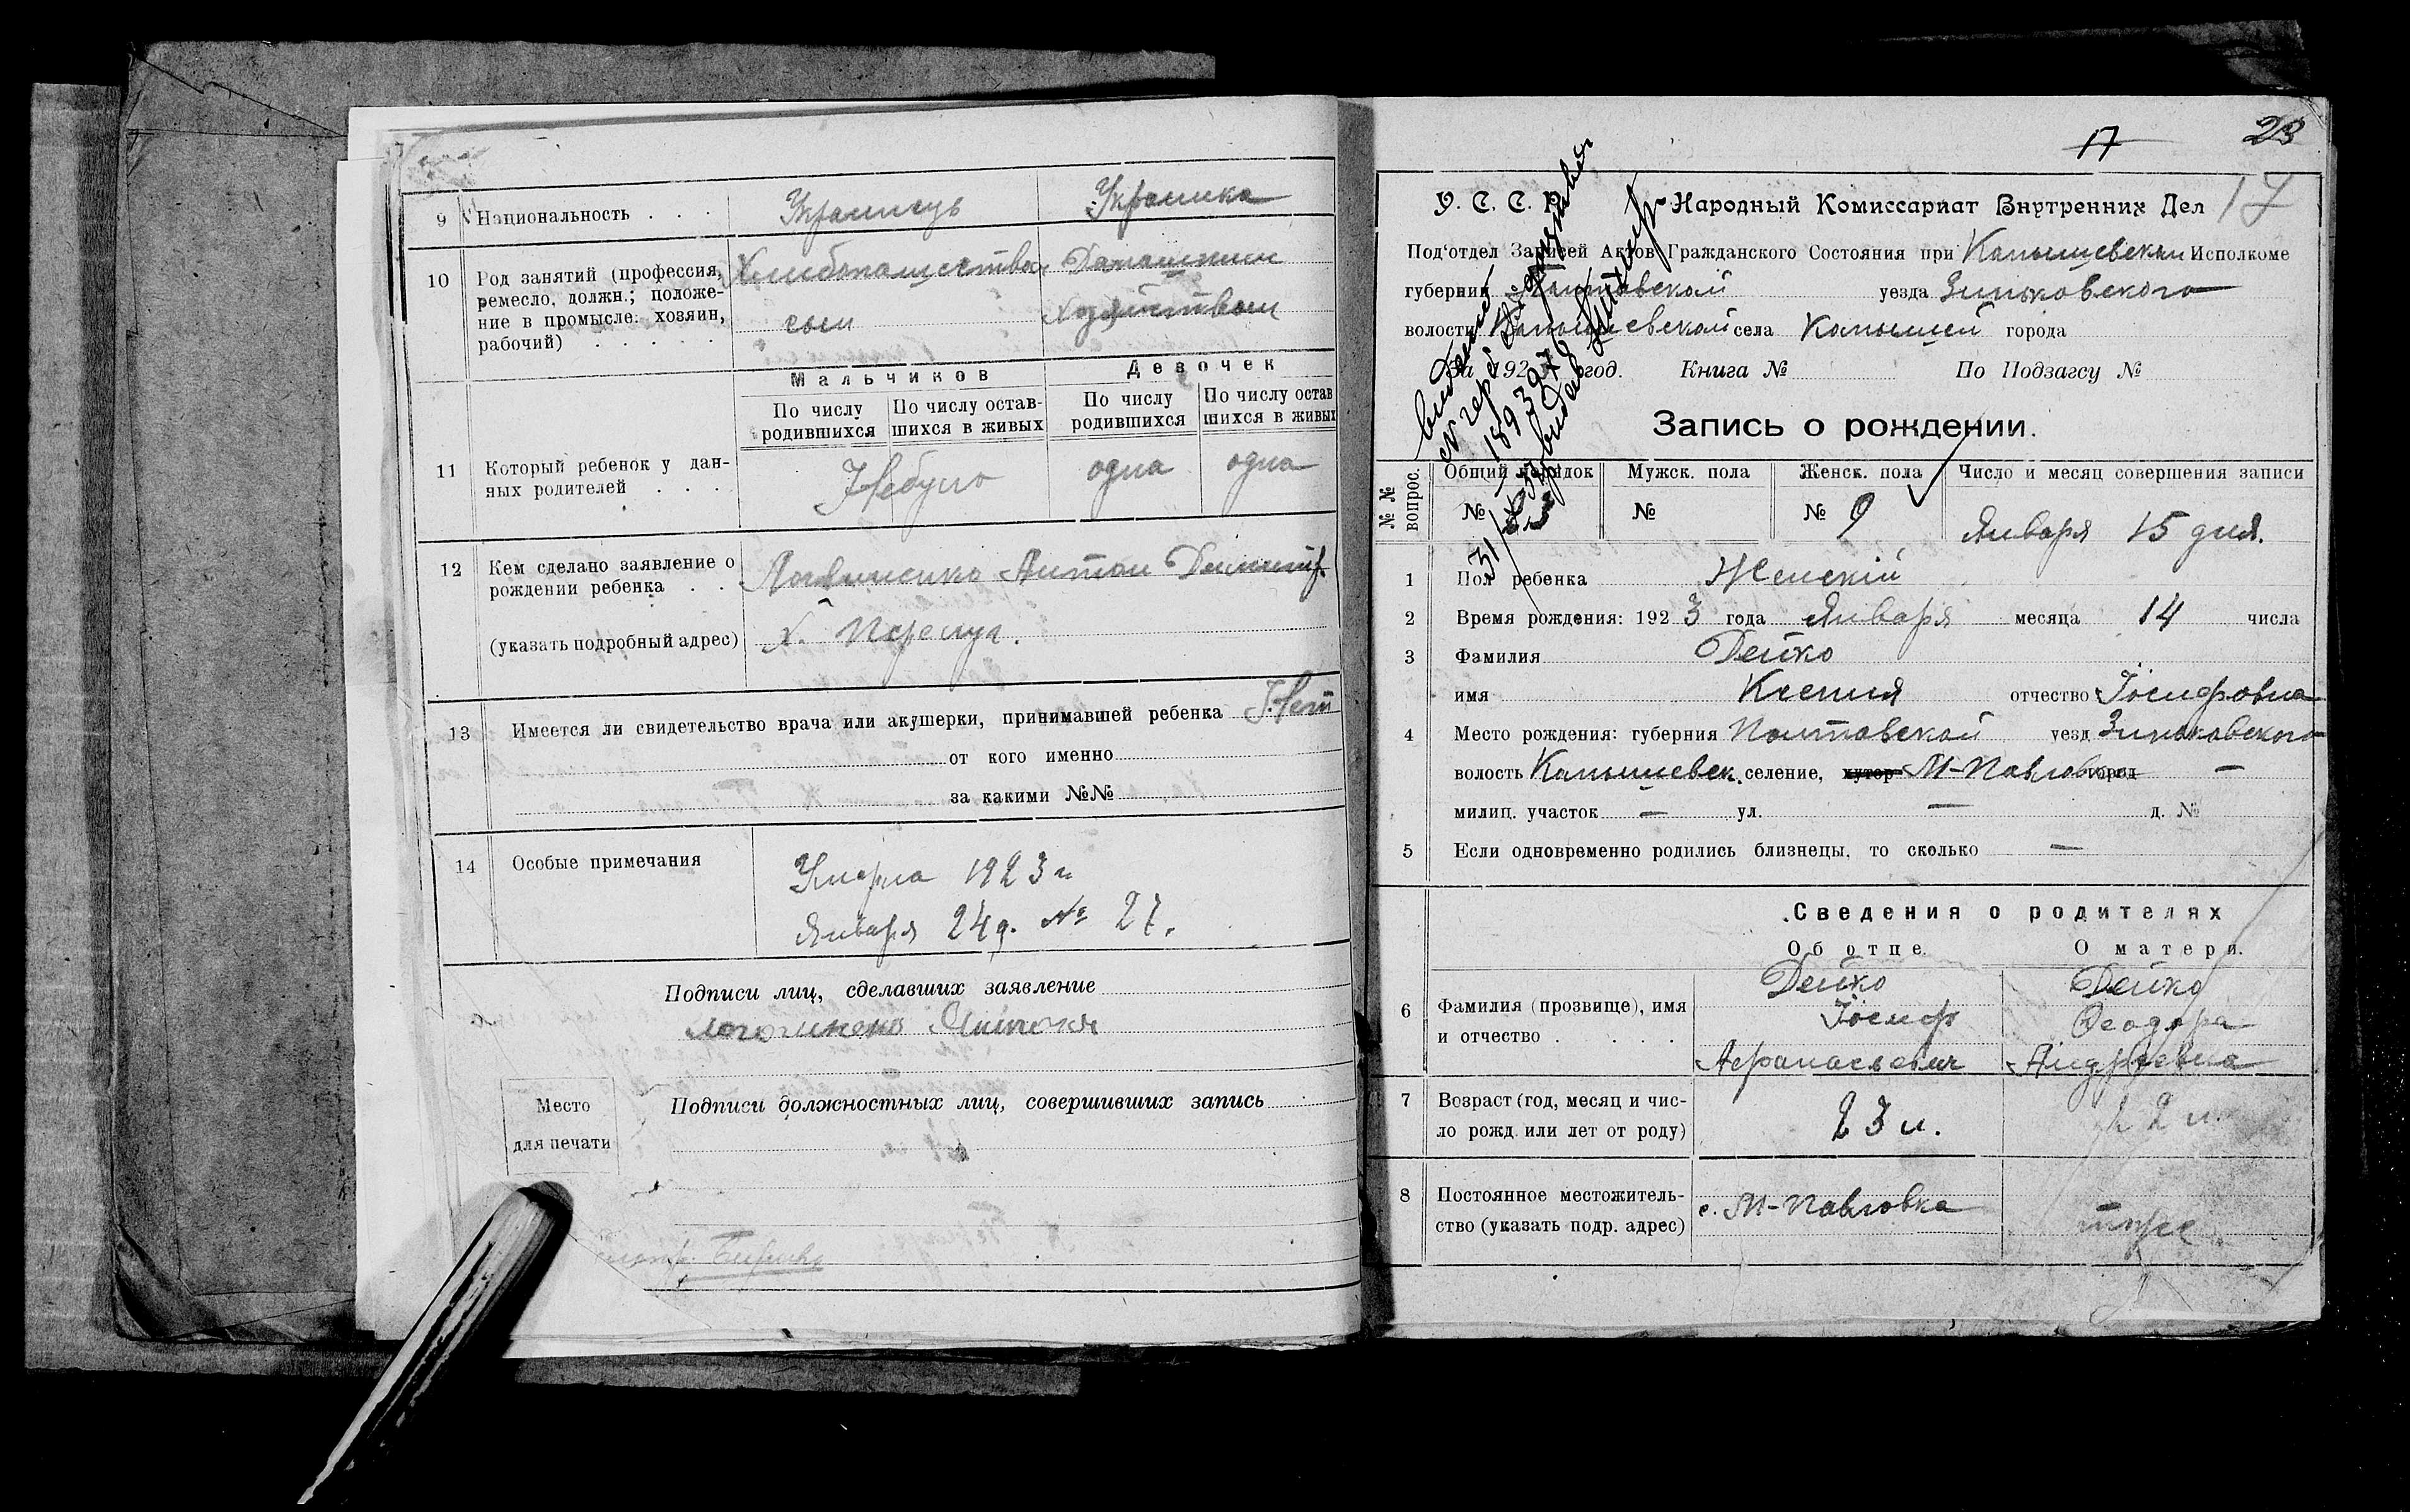 9 Национальность . . . Украинець Украинка
10 Род занятий (профессия, Хлибопашество Домашним
ремесло, должн.; положе-
ние в промысле: хозяин, сам хозяйством
рабочий) . . . . .
Мальчиков Девочек
По числу По числу остав- По числу По числу остав
родившихся шихся в живых родившихся шихся в живых
11 Который ребенок у дан-
ных родителей . . . Небуло одна одна
12 Кем сделано заявление о
рождении ребенка . . Антон Дмитр.
(указать подробный адрес) х.
13 Имеется ли свидетельство врача или акушерки, принимавшей ребенка Нет
от кого именно
за какими №№
14 Особые примечания Умерла 1923 г.
Января 24 д. № 27.
Подписи лиц, сделавших заявление
Место
для печати
Подписи должностных лиц, совершивших запись
17 23
У. С. С. Р. Народный Комиссариат Внутренних Дел 17
Под'отдел Записей Актов Гражданского Состояния при Камышевском Исполкоме
губернии Полтавской уезда Зиньковского
волости Камышевской села Камышей города
За 192 год. Книга № По Подзагсу №
Запись о рождении.
№ № вопрос. Общий порядок Мужск. пола Женск. пола Число и месяц совершения записи
№ № № 9 Января 15 дня.
1 Пол ребенка Женскій
2 Время рождения: 1923 года Января месяца 14 числа
3 Фамилия Дейко
имя Ксения отчество Іосифовна
4 Место рождения: губерния Полтавской уезд Зиньковского
волость Камышевск. селение, хутор М-Павловка город —
милиц. участок — ул. — д. №
5 Если одновременно родились близнецы, то сколько —
Сведения о родителях
Об отце. О матери.
Дейко Дейко
6 Фамилия (прозвище), имя Іосиф Феодора
и отчество . . . . Афранасьевич Андреевна
7 Возраст (год, месяц и чис-
ло рожд. или лет от роду) 23 л. 22 л.
8 Постоянное местожитель- с. М-Павловка
ство (указать подр. адрес) тоже